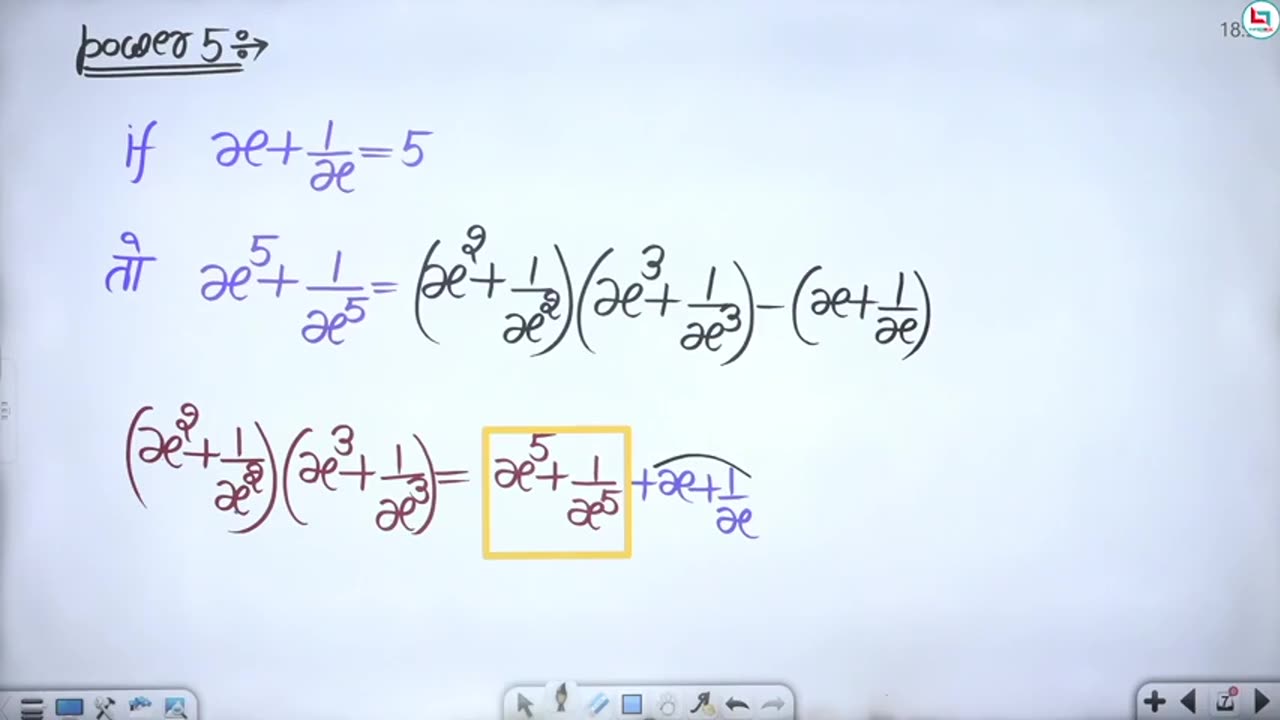 power 5 ÷→
if x + 1/x = 5
तो x⁵ + 1/x⁵ = (x² + 1/x²)(x³ + 1/x³) − (x + 1/x)
(x² + 1/x²)(x³ + 1/x³) = x⁵ + 1/x⁵ + x + 1/x